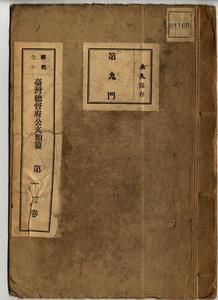 永久保存
第九門
昭和
七年
臺灣總督府公文類纂
第一二卷